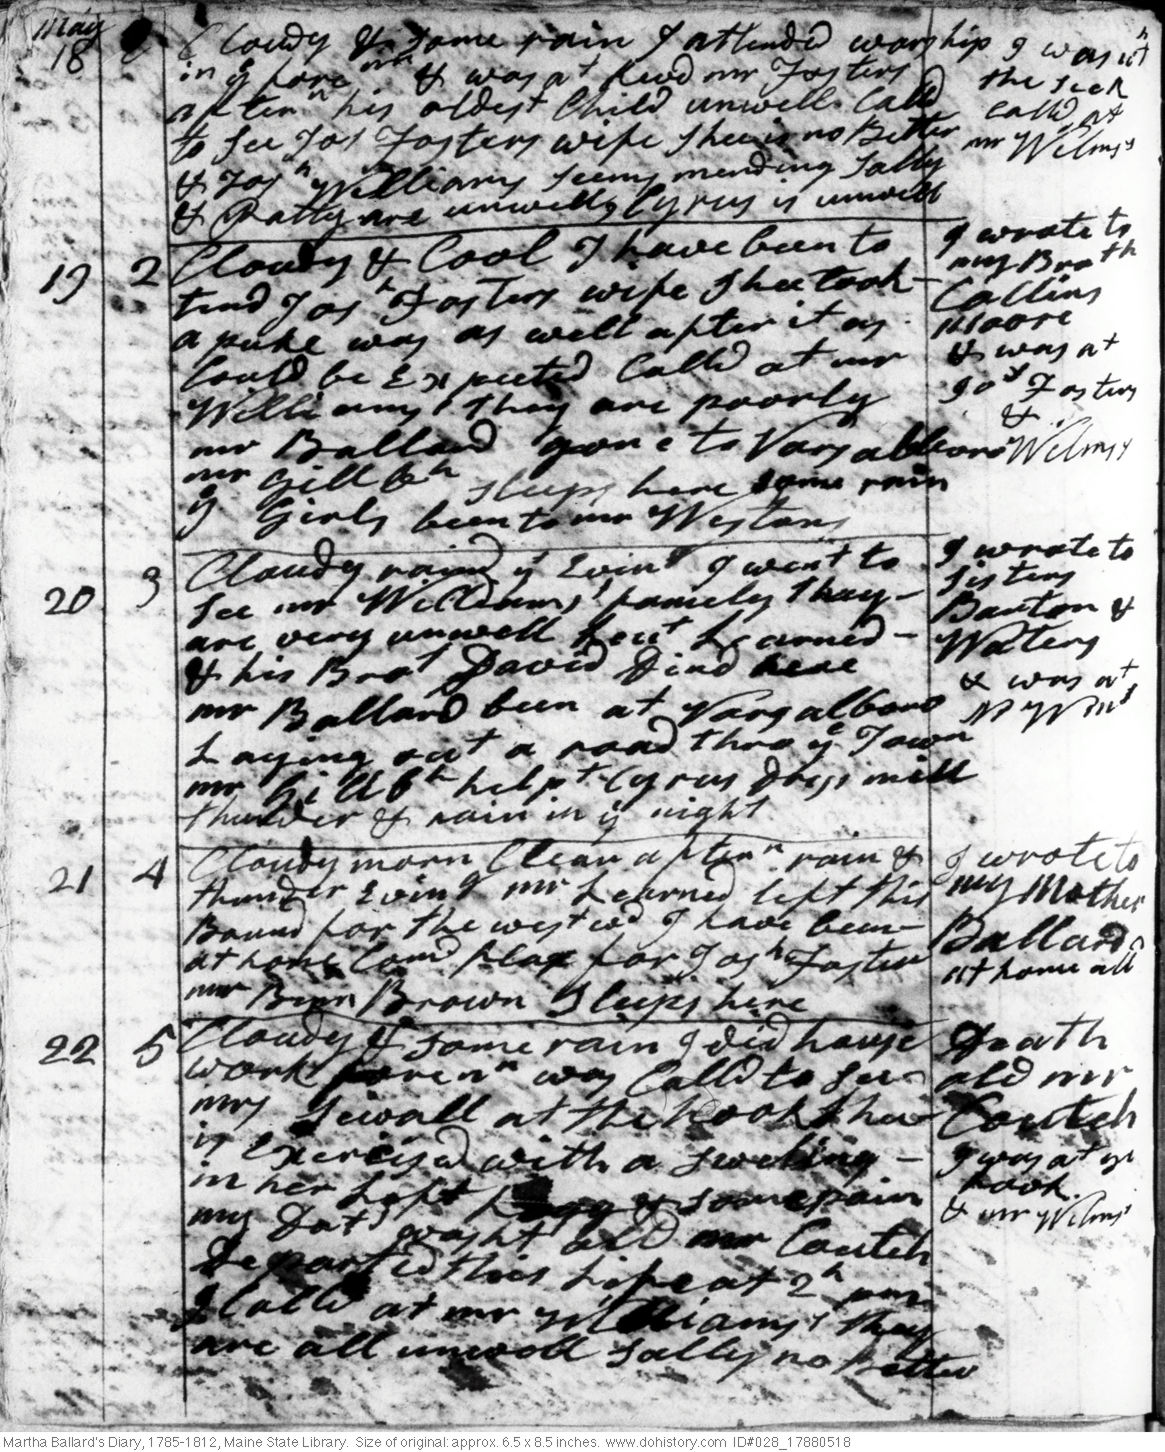 May
18 C Cloudy & some rain I attended worship
in ye fore nn & was at
aftern n his oldest Child unwell Calld
to see Jos Fosters wife Shee is no Better
& Jos h Williams seems mending Sally
& Patty are unwell, Cyrus is unwell
I was at
the sick
calld at
mr Wilmss
19 2 Cloudy & Cool I have been to
tend Jos h Fosters wife Shee took
a puke was as well after it as
Could be Expected Calld at mr
Williams' they are poorly
mr Ballard gone to Varsalboro
mr Gill Bh sleeps here some rain
ye Girls been to mr Westons
I wrote to
my Broth
Collins
Moore
& was at
Jos Fosters
&
Wilmss
20 3 Cloudy raind ye Evin g I went to
see mr Williams' famely they
are very unwell Leut Learned
& his Brot David Dind here
mr Ballard been at Varsalboro
Laying out a road thro ye Town
mr Gill Bh helpt Cyrus Drss mill
thunder & rain in ye night
I wrote to
sisters
Barton &
Waters
& was at
mr Wms
21 4 Cloudy morn Clear aftern n rain &
thunder Evin g mr Learned left this
Bound for the westwd I have been
at home Comd flax for Jos h Foster
mr Benn Brown Sleeps here
I wrote to
my Mother
Ballard
at home all
22 5 Cloudy & some rain I did house
work foren n was Calld to see
mrs Sewall at the hook shee
is Exercisd with a swelling
in her Left Legg & some pain
my Dats washt old mr Coutch
Departed this Life at 2 h morn
I Calld at mr Williams' they
are all unwell Sally no Better
Death
old mr
Coutch
I was at ye
hook
& mr Wilmss
Martha Ballard's Diary, 1785-1812, Maine State Library. Size of original: approx. 6.5 x 8.5 inches. www.dohistory.com ID#028_17880518